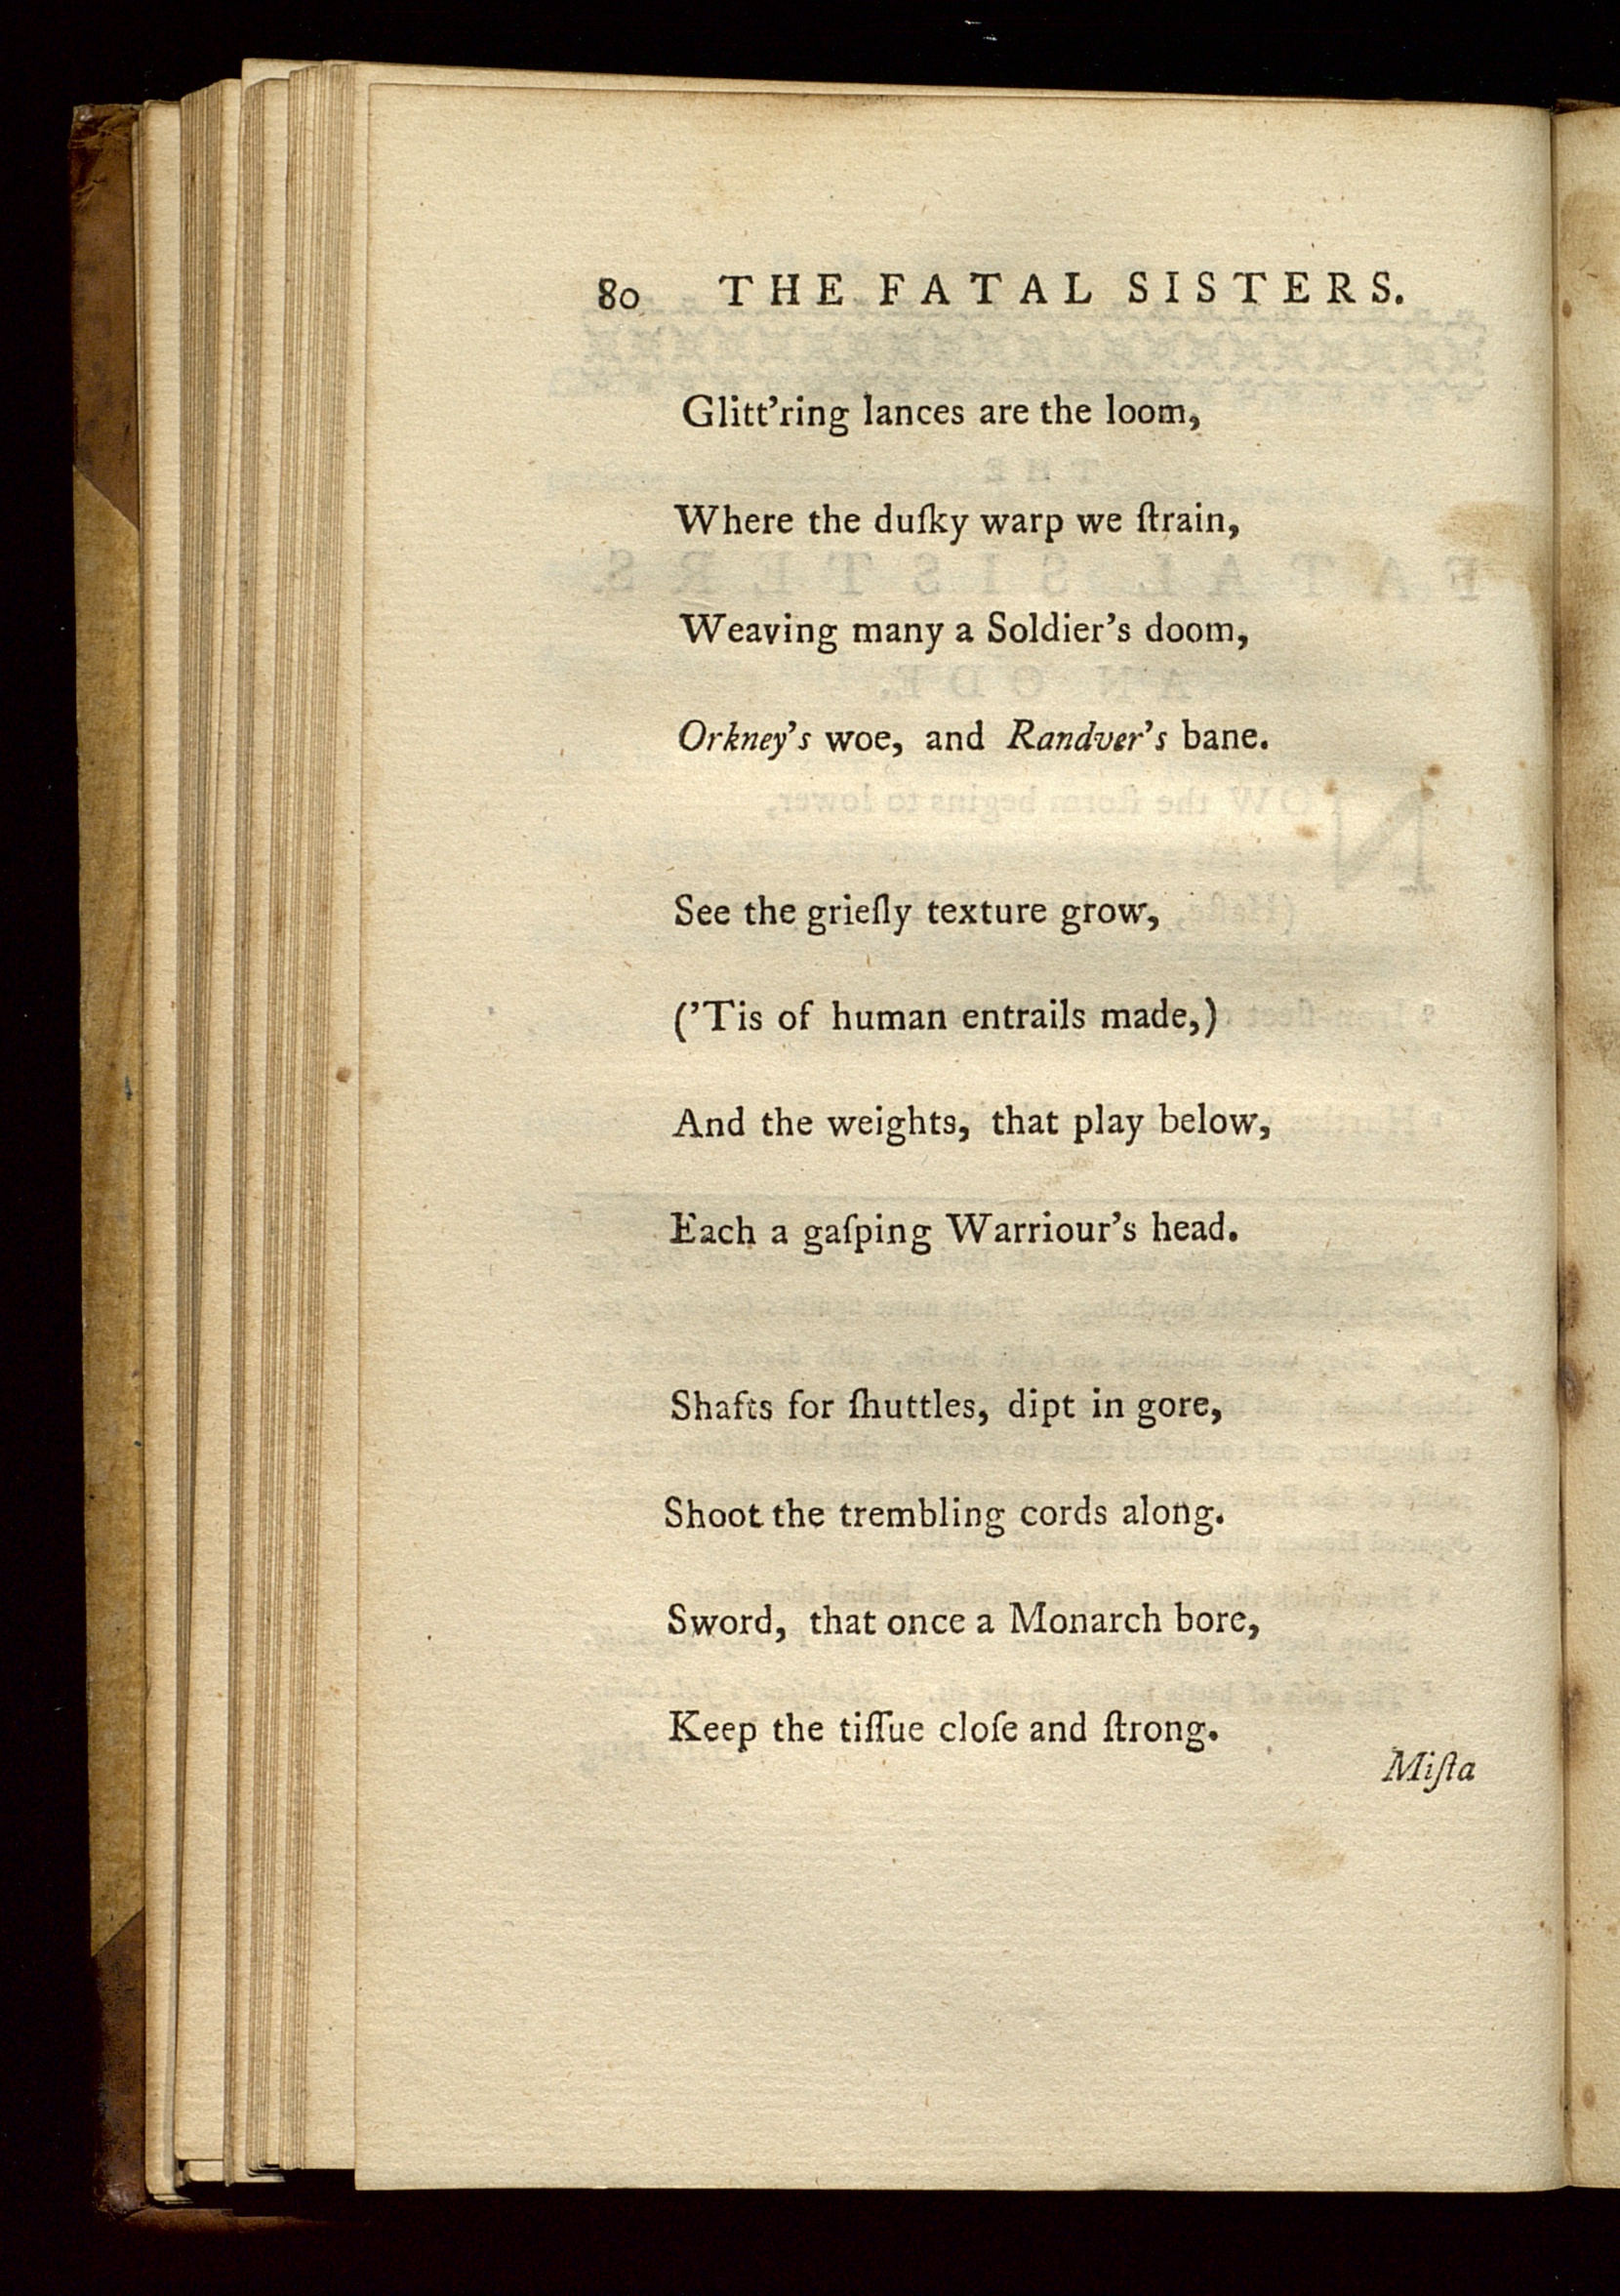 80 THE FATAL SISTERS.
Glitt'ring lances are the loom,
Where the duſky warp we ſtrain,
Weaving many a Soldier's doom,
Orkney's woe, and Randver's bane.
See the grieſly texture grow,
('Tis of human entrails made,)
And the weights, that play below,
Each a gaſping Warriour's head.
Shafts for ſhuttles, dipt in gore,
Shoot the trembling cords along.
Sword, that once a Monarch bore,
Keep the tiſſue cloſe and ſtrong.
Miſta